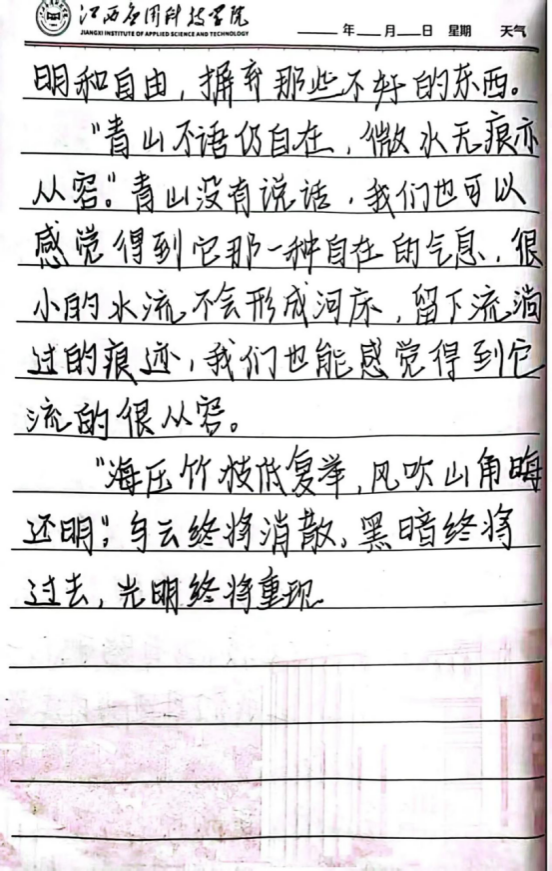 江西应用科技学院
JIANGXI INSTITUTE OF APPLIED SCIENCE AND TECHNOLOGY
年 月 日 星期 天气
明和自由，摒弃那些不好的东西。
“青山不语仍自在，微水无痕亦
从容。”青山没有说话，我们也可以
感觉得到它那一种自在的气息，很
小的水流不会形成河床，留下流淌
过的痕迹，我们也能感觉得到它
流的很从容。
“海压竹枝低复举，风吹山角晦
还明”。乌云终将消散，黑暗终将
过去，光明终将重现。